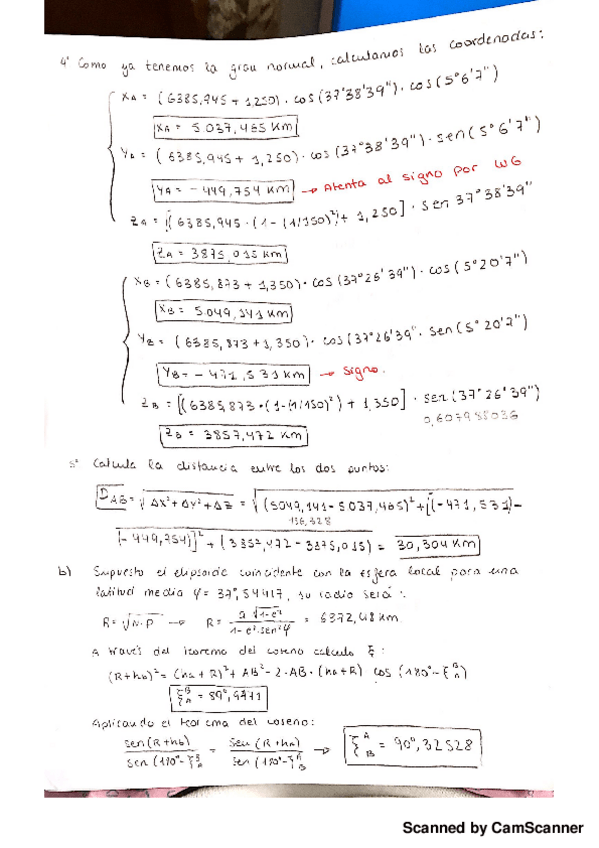 4º Como ya tenemos la gran normal, calculamos las coordenadas:
XA = (6385,945 + 1,250) · cos (37°38'39") · cos (5°6'7")
XA = 5.037,465 Km
YA = (6385,945 + 1,250) · cos (37°38'39") · sen (5°6'7")
YA = -449,754 Km → Atenta al signo por WG
ZA = [(6385,945 · (1 - (1/150)²) + 1,250] · sen 37°38'39"
ZA = 3875,015 Km
XB = (6385,873 + 1,350) · cos (37°26'39") · cos (5°20'7")
XB = 5.049,141 Km
YB = (6385,873 + 1,350) · cos (37°26'39") · sen (5°20'7")
YB = -471,531 Km → signo.
ZB = [(6385,873 · (1 - (1/150)²) + 1,350] · sen (37°26'39")
0,607988036
ZB = 3857,472 Km
5º Calcula la distancia entre los dos puntos:
DAB = √ΔX² + ΔY² + ΔZ = √(5049,141 - 5.037,465)² + [(-471,531) -
136,328
(-449,754)]² + (3857,472 - 3875,015) = 30,304 Km
b) Supuesto el elipsoide coincidente con la esfera local para una
latitud media φ = 37°,54417, su radio será:
R = √N·P → R = a √1-e² / 1-e²·sen²φ = 6372,48 Km
A través del teorema del coseno calculo ξ:
(R+hb)² = (ha+R)² + AB² - 2·AB·(ha+R) cos (180°-ξ B A)
ξ B A = 89°,9771
Aplicando el teorema del coseno:
sen (R+hb) / sen (180°-ξ B A) = sen (R+ha) / sen (180°-ξ A B) → ξ A B = 90°,32528
Scanned by CamScanner